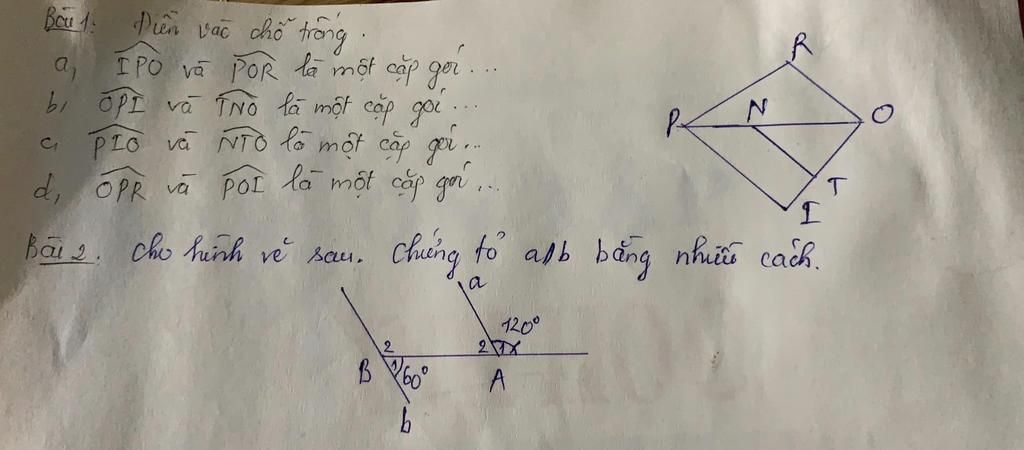 Bài 1: Điền vào chỗ trống.
a, IPO và POR là một cặp gói ...
b, OPI và TNO là một cặp gói ...
c, PIO và NTO là một cặp gói ...
d, OPR và POI là một cặp gói ...
R
P N O
T
I
Bài 2. Cho hình vẽ sau. Chứng tỏ a//b bằng nhiều cách.
a
120°
2 2 1 x
B 1 60° A
b